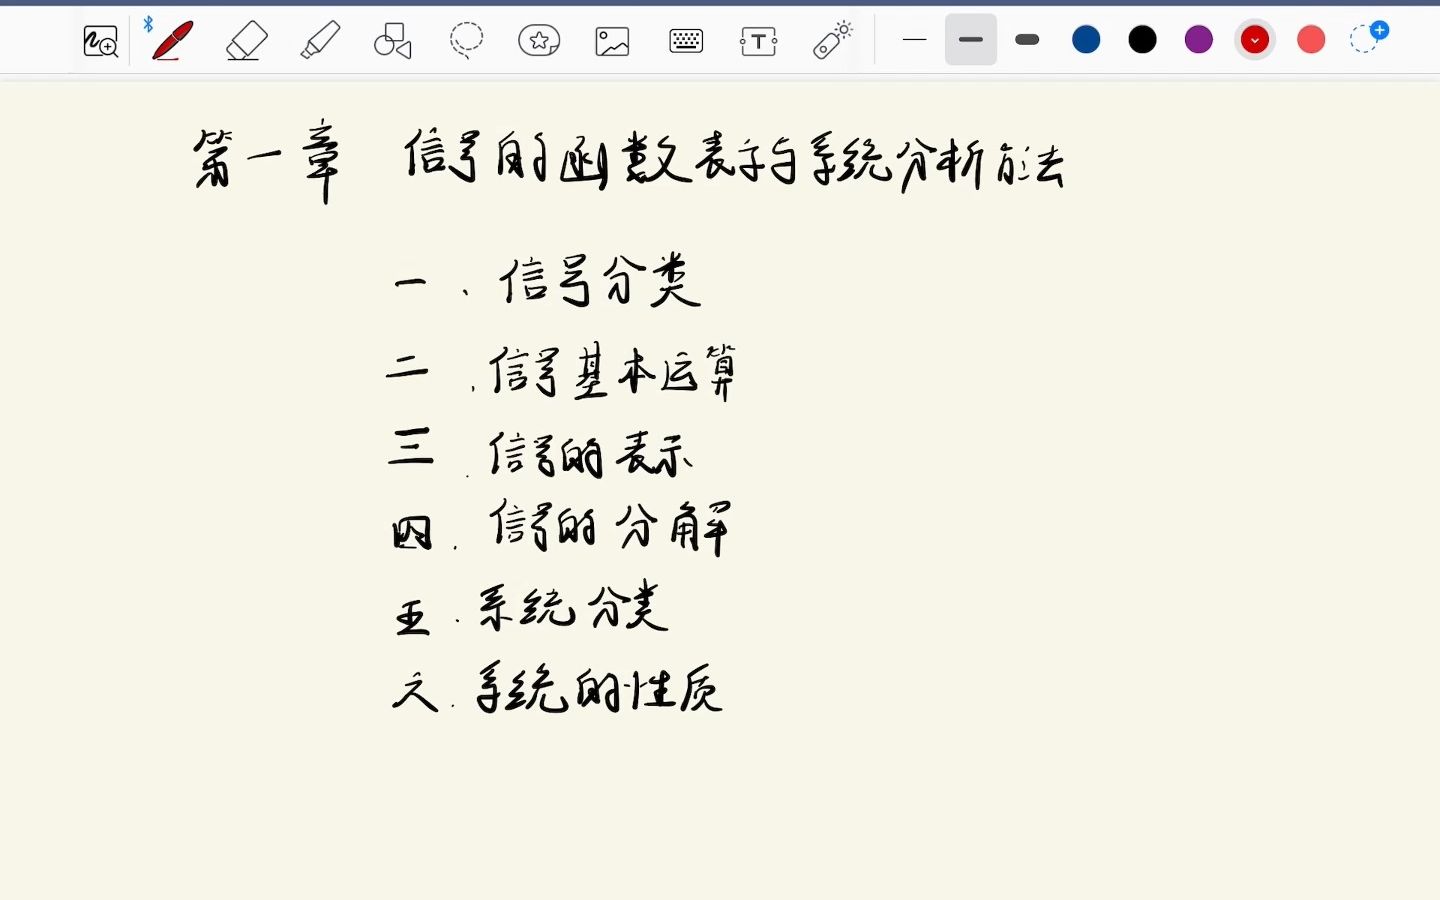 第一章 信号的函数表示与系统分析方法
一、信号分类
二、信号基本运算
三、信号的表示
四、信号的分解
五、系统分类
六、系统的性质